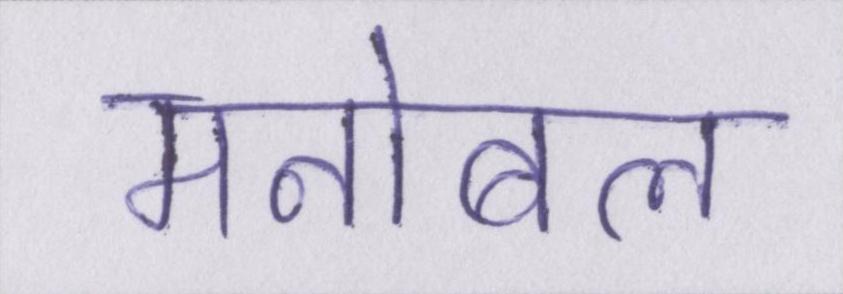 मनोबल